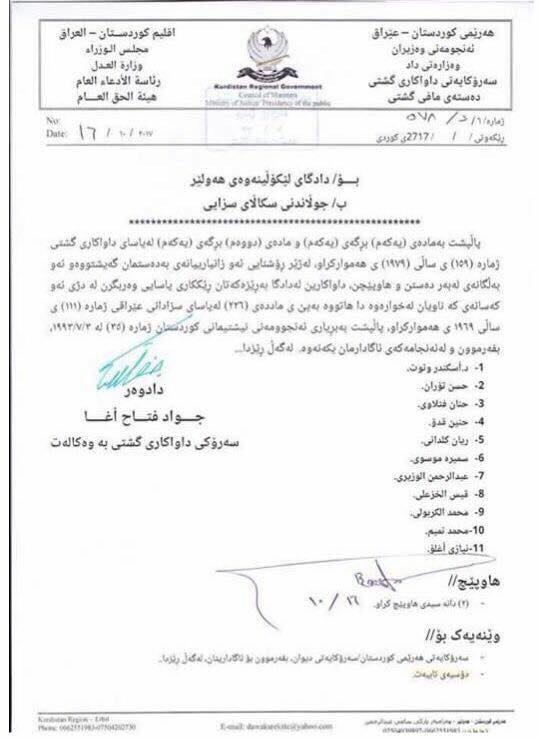 هەرێمی کوردستان – عێراق
ئەنجومەنی وەزیران
وەزارەتی داد
سەرۆکایەتی داواکاری گشتی
دەستەی مافی گشتی
اقلیم کوردستـان – العراق
مجلس الـوزراء
وزارة العـدل
رئاسة الأدعاء العام
هيئة الحق العـــام
Kurdistan Regional Government
Council of Ministers
Ministry of Justice Presidency of the public
No:
Date: ١٦ / ١٠ / ٢٠١٧
ژمارە/
ڕێکەوتی/ / / 2717ی کوردی
بــۆ/ دادگای لێکۆڵینەوەی هەولێر
ب/ جوڵاندنی سکاڵای سزایی
پاڵپشت بەمادەی (یەکەم) برگەی (یەکەم) و مادەی (دووەم) برگەی (یەکەم) لەیاسای داواکاری گشتی
ژمارە (١٥٩) ی ساڵی (١٩٧٩) ی هەموارکراو، لەژێر ڕۆشنایی ئەو زانیارییانەی بەدەستمان گەیشتووەو ئەو
بەڵگانەی لەبەر دەستن و هاوپێچن، داواکارین لەدادگا بەڕێزەکەتان ڕێککاری یاسایی وەربگرن لە دژی ئەو
کەسانەی کە ناویان لەخوارەوە دا هاتووە بەپێ ی ماددەی (٢٢٦) لەیاسای سزادانی عێراقی ژمارە (١١١) ی
ساڵی ١٩٦٩ ی هەموارکراو، پاڵپشت بەبڕیاری ئەنجوومەنی نیشتیمانی کوردستان ژمارە (٢٥) لە ١٩٩٣/٧/٣،
بفەرموون و لەئەنجامەکەی ئاگادارمان بکەنەوە. لەگەڵ ڕێزدا...
1- د.أسکندر وتوت.
2- حسن تۆران.
3- حنان فتلاوی.
4- حنین قدۆ.
5- ریان کلدانی.
6- سمیرە موسوی.
7- عبدالرحمن الوزیری.
8- قیس الخزعلی.
9- محمد الکربولی.
10- محمد تمیم.
11- نیازی أغلۆ.
دادوەر
جـــواد فتــاح أغــا
سەرۆکی داواکاری گشتی بە وەکالەت
١٦ / ١٠
هاوپێچ//
- (٢) دانە سیدی هاوپێچ کراو.
وێنەیەک بۆ//
- سەرۆکایەتی هەرێمی کوردستان/سەرۆکایەتی دیوان، بفەرموون بۆ ئاگاداریتان، لەگەڵ ڕێزدا..
- دۆسیەی تایبەت.
Kurdistan Region – Erbil
Phone: 0662551983-07504202730
E-mail: dawakarekitte@yahoo.com